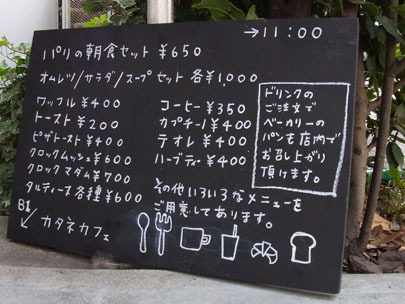 →11:00
パリの朝食セット ¥650
オムレツ/サラダ/スープセット 各¥1,000
ワッフル ¥400
トースト ¥200
ピザトースト ¥400
クロックムッシュ ¥600
クロックマダム ¥700
タルティーヌ各種 ¥600
コーヒー ¥350
カプチーノ ¥400
テオレ ¥400
ハーブティー ¥400
その他いろいろなメニューを
ご用意してあります。
ドリンクの
ご注文で
ベーカリーの
パンも店内で
お召し上がり
頂けます。
B1
↙ カタネカフェ